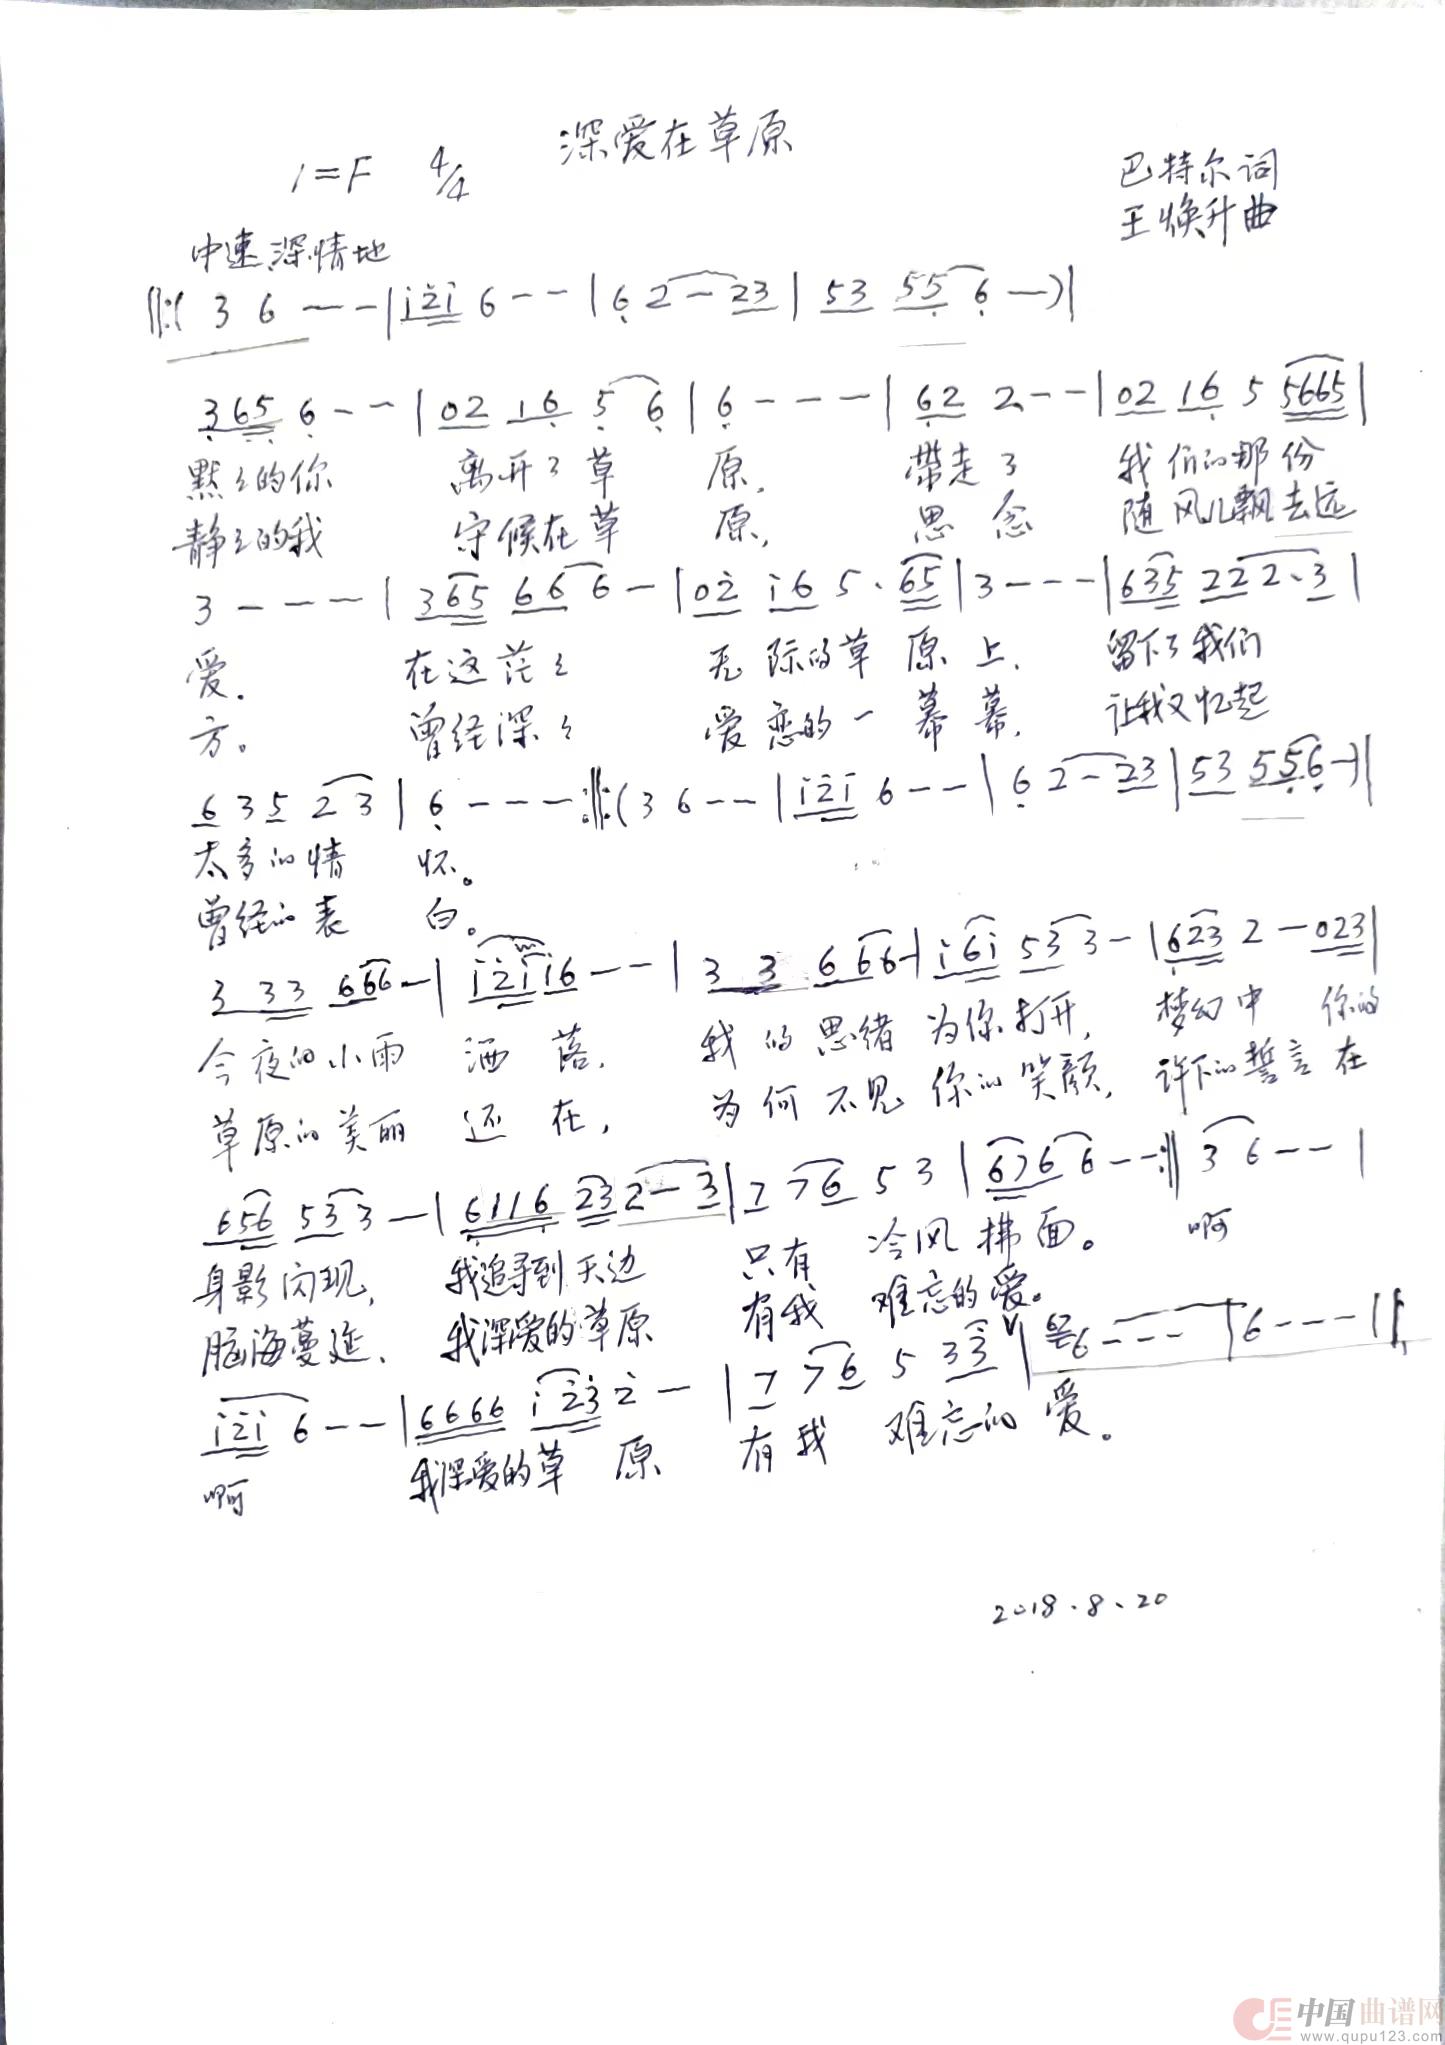 深爱在草原
1=F 4/4
巴特尔词
王焕升曲
中速 深情地
‖:( 3 6 - - - | i2i 6 - - | 6 2 - 23 | 53 55 6 - ) |
365 6 - - | 02 16 5 6 | 6 - - - | 62 2 - - | 02 16 5 5665 |
默々的你 离开了草 原, 带走了 我们的那份
静々的我 守候在草 原, 思念 随风儿飘去远
3 - - - | 365 66 6 - | 02 i6 5 · 65 | 3 - - - | 635 22 2 · 3 |
爱. 在这茫々 无际的草原上. 留下了我们
方。 曾经深々 爱恋的一幕幕, 让我又忆起
6 3 5 2 3 | 6 - - - :‖:( 3 6 - - | i2i 6 - - | 6 2 - 23 | 53 556 - ) |
太多的情 怀。
曾经的表 白。
3 33 666 - | i2i i6 - - | 3 3 6 66 - | i6i 53 3 - | 623 2 - 023 |
今夜的小雨 洒落, 我的思绪为你打开, 梦幻中 你的
草原的美丽 还在, 为何不见你的笑颜, 许下的誓言在
656 53 3 - | 6116 23 2 - 3 | 7 76 5 3 | 676 6 - - :‖ 3 6 - - |
身影闪现, 我追寻到天边 只有 冷风拂面。 啊
脑海蔓延、 我深爱的草原 有我 难忘的爱。
i2i 6 - - | 6666 i23 2 - | 7 76 5 33 | 6 - - - | 6 - - - ‖
啊 我深爱的草原 有我 难忘的爱。
2018.8.20
中国曲谱网
www.qupu123.com